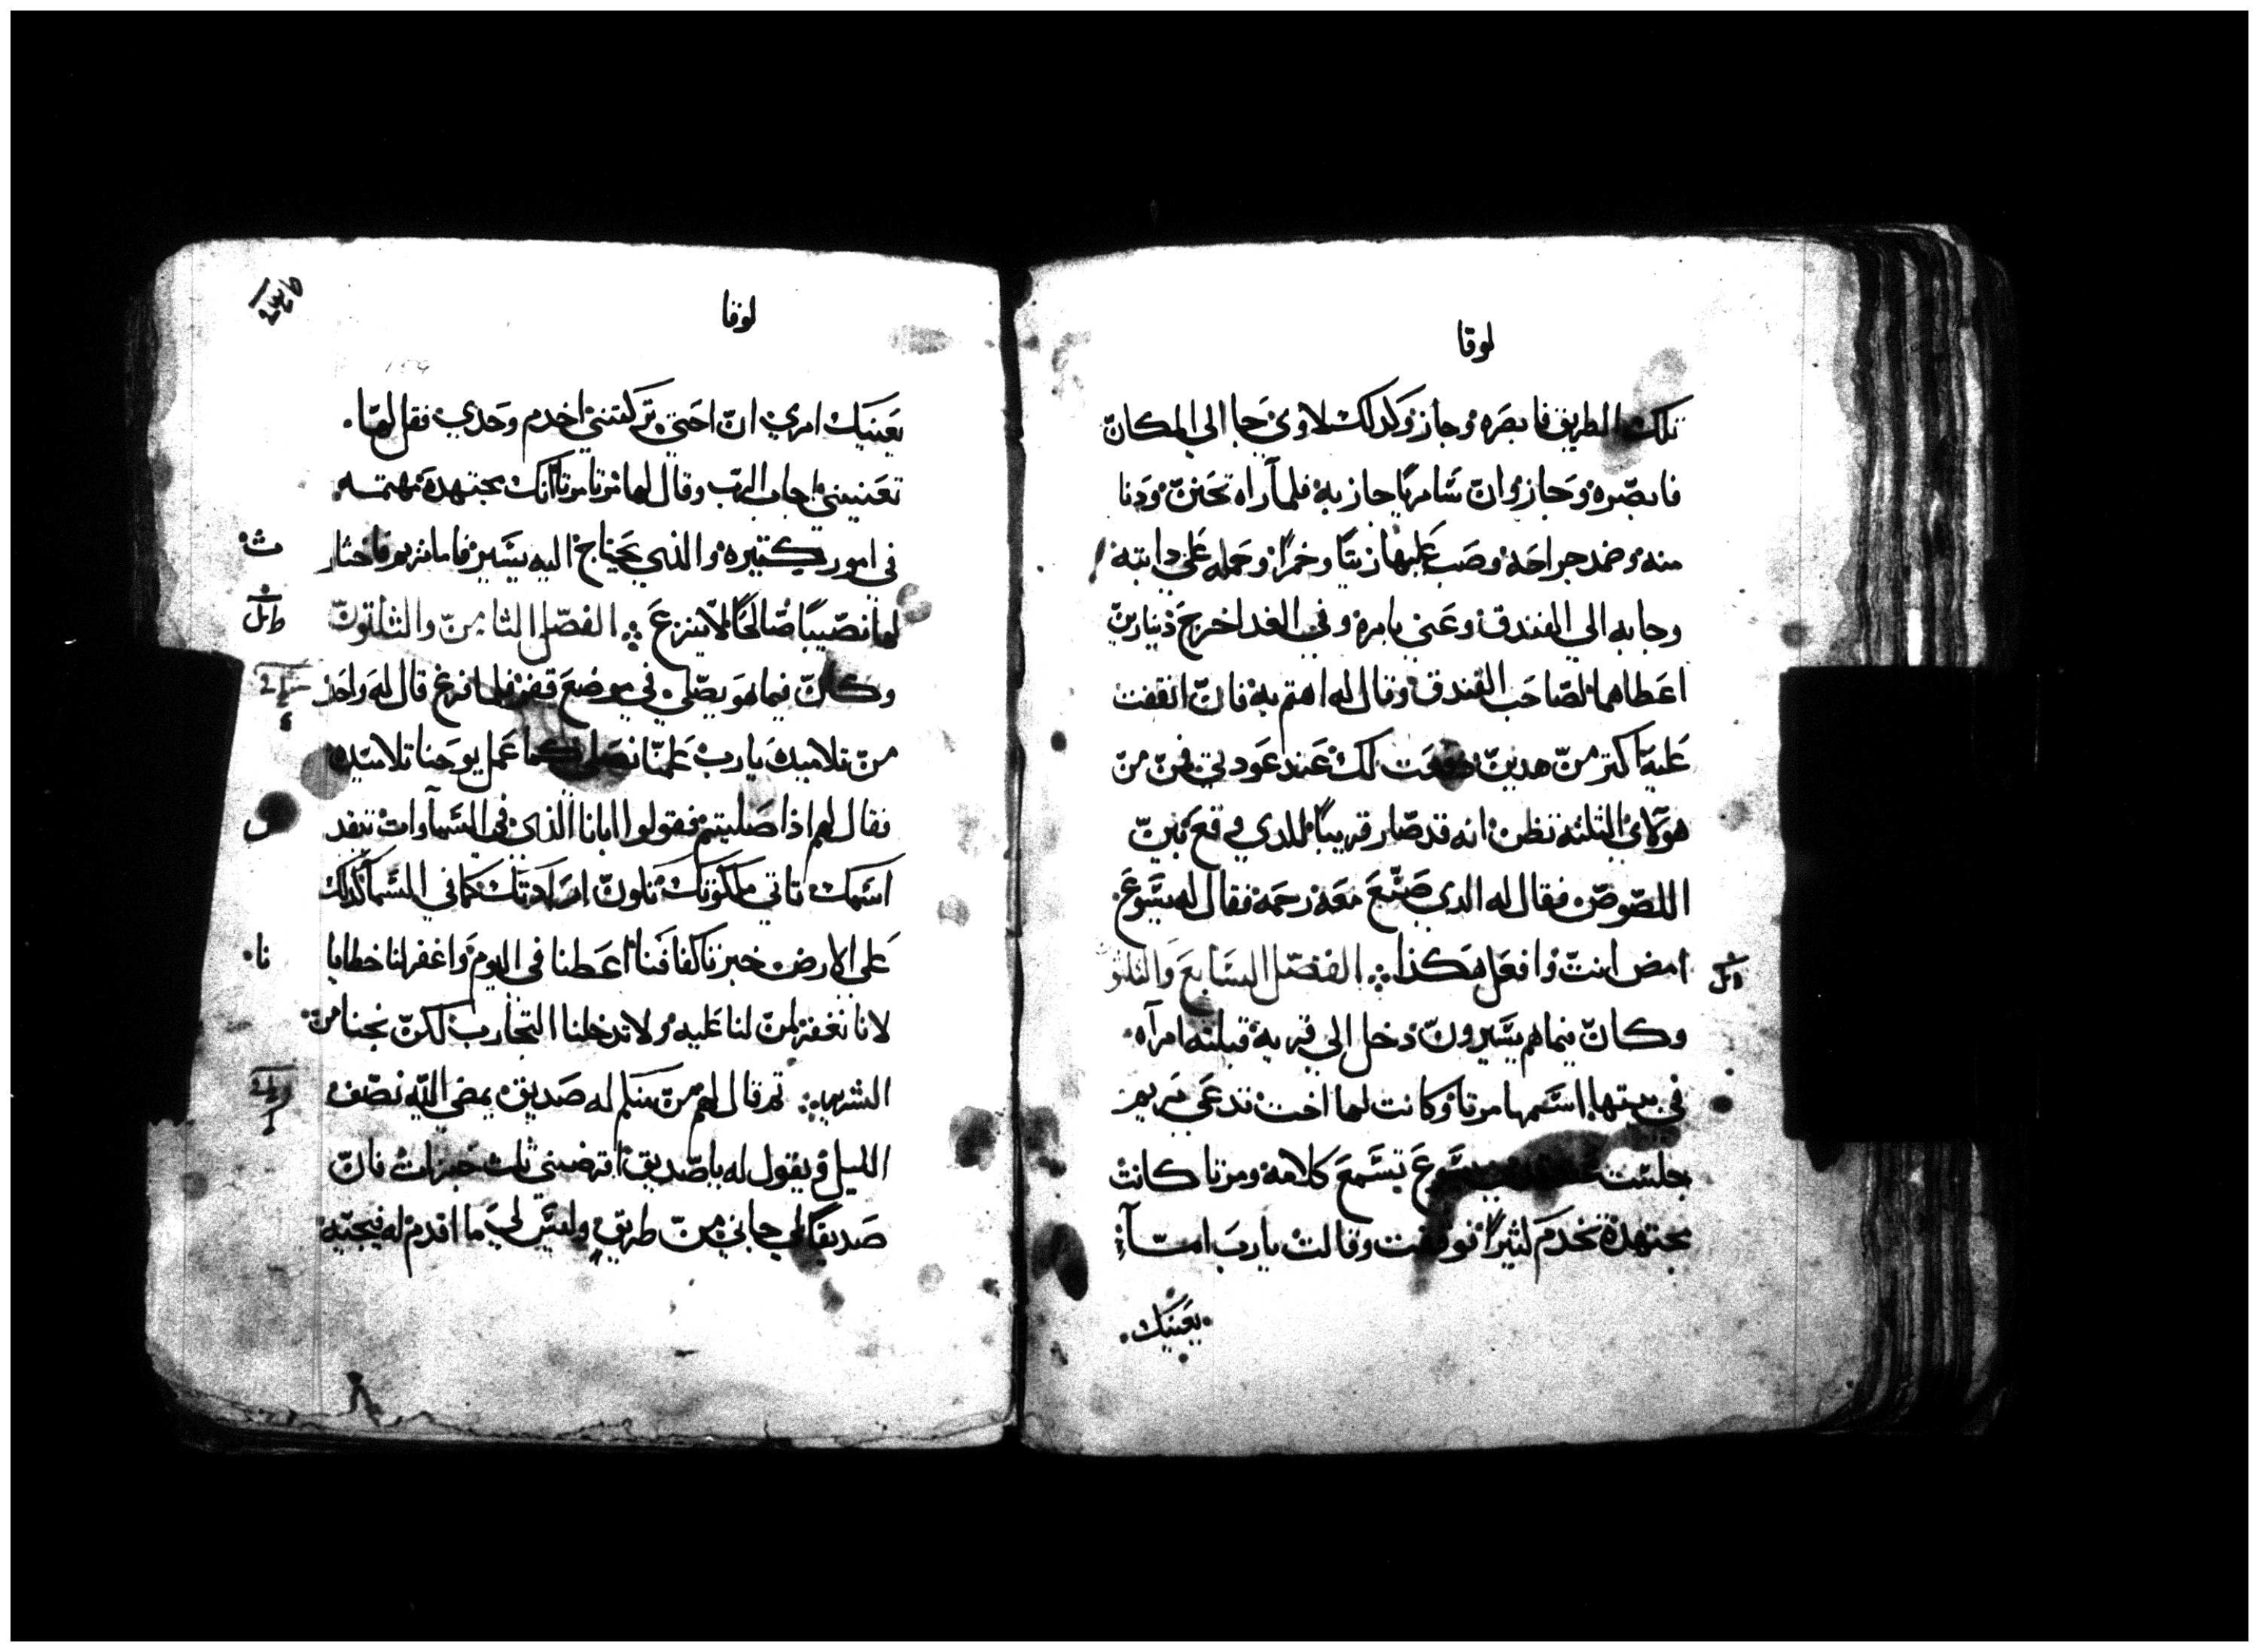 لوقا
تلك الطريق فابصره وجاز وكدلك لاوي جا الي المكان
فابصره وجاز وان سامريا جاز به فلما راه تحنن ودنا
منه وضمد جراحه وصب عليها زيتا وخمرا وحمله علي دابته
وجابه الي الفندق وعني بامره وفي الغد اخرج دينارين
اعطاهما لصاحب الفندق وقال له اهتم به فان انفقت
عليه اكتر من هدين دفعت لك عند عودتي فمن من
هولاي الثلثه تظن انه قد صار قريبا للدي وقع بين
اللصوص فقال له الدي صنع معه رحمه فقال له يسوع
امض انت وافعل هكذا الفصل السابع والثلثو
وكان فيما هم يسيرون دخل الي قريه قبلته امراه
في بيتها اسمها مرتا وكانت لها اخت تدعي مريم
جلست يسوع تسمع كلامه ومرتا كانت
مجتهدة تخدم كثيرا فوقفت وقالت يارب اما
يعنيك
لوقا
يعنيك امري ان اختي تركتني اخدم وحدي فقل لها
تعنيني اجاب الرب وقال لها مرتا مرتا انك مجتهدة مهتمه
في امور كتيره والذي يحتاج اليه يسير فاما مريم فاختار
لها نصيبا صالحا لا ينزع الفصل الثامن والثلثون
وكان فيما هو يصلي في موضع قفر فلما فرغ قال له واحد
من تلاميده يارب علمنا نصلي كما عمل يوحنا تلاميده
فقال لهم اذا صليتم فقولوا ابانا الذي في السماوات تتقدس
اسمك تاتي ملكوتك تكون ارادتك كما في السما كذلك
علي الارض خبزنا كفافنا اعطنا في اليوم واغفر لنا خطايا
نا
لانا نغفر لمن لنا عليه ولا تدخلنا التجارب لكن نجنا من
الشرير ثم قال لهم من منكم له صديق يمضي اليه نصف
الليل ويقول له يا صديق اقرضني ثلث خبزات فان
صديقا لي جاني من طريق وليس لي ما اقدم له فيجيبه